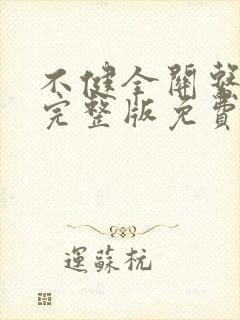 不健全關繫
完整版免費
運蘇杭